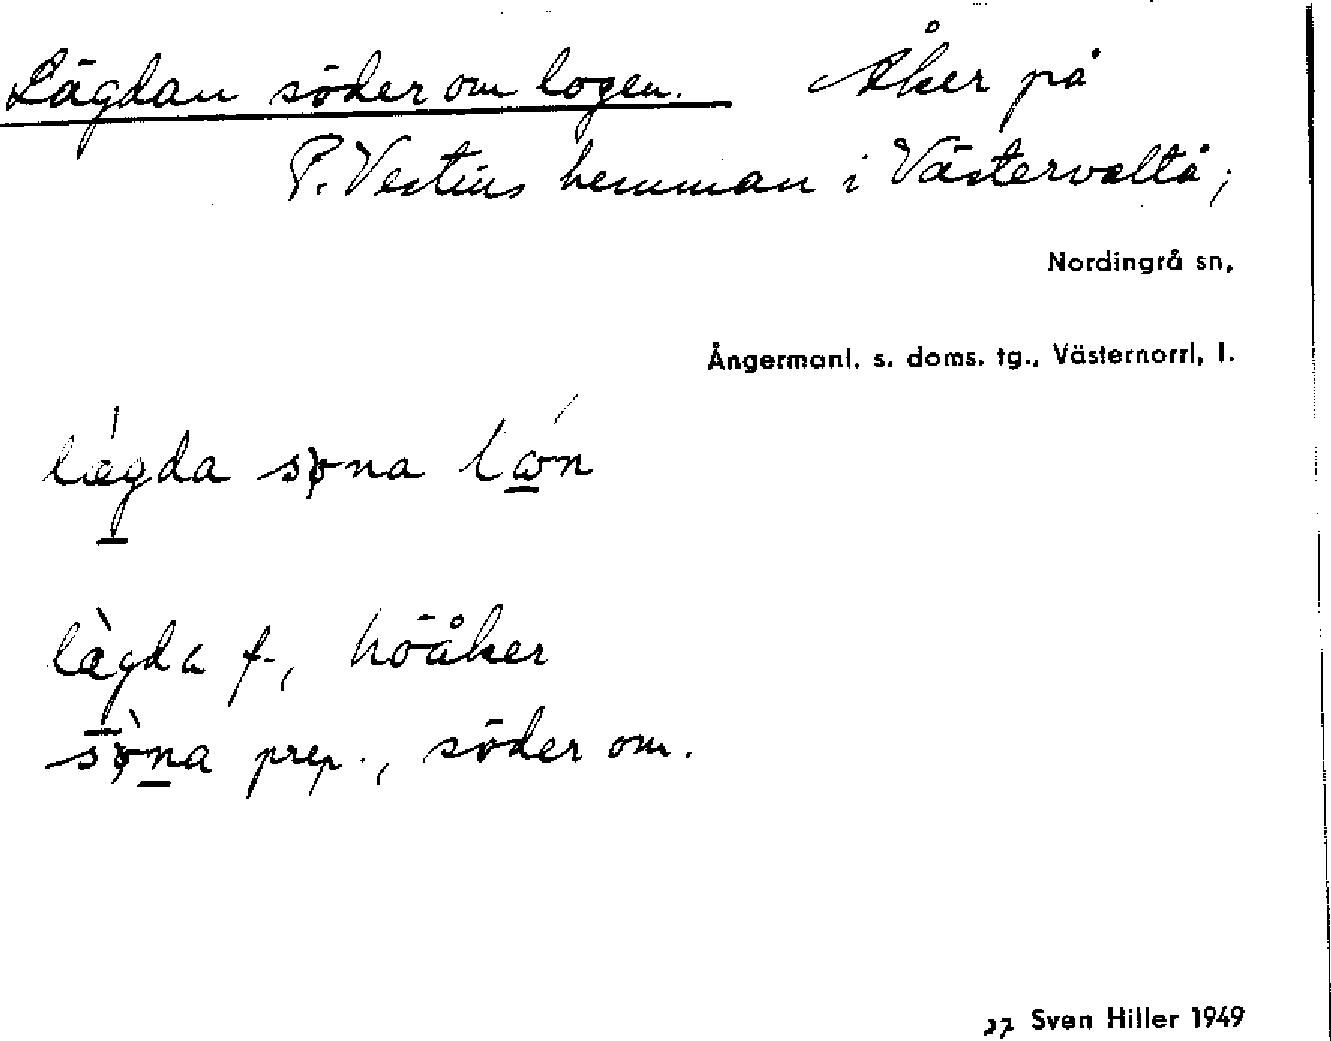 Lägdan söder om logen. Åker på
P. Vestins hemman i Västervalta;
Nordingrå sn,
Ångermanl. s. doms. tg., Västernorrl, l.
lǽgda søna lón
lægda f., höåker
sø̀na prep., söder om.
Sven Hiller 1949